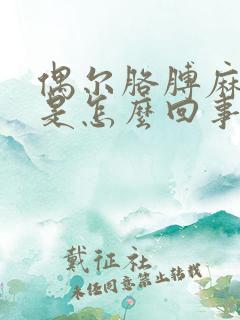 偶尔胳膊麻
是怎么回事
戴征社
未经同意禁止转载